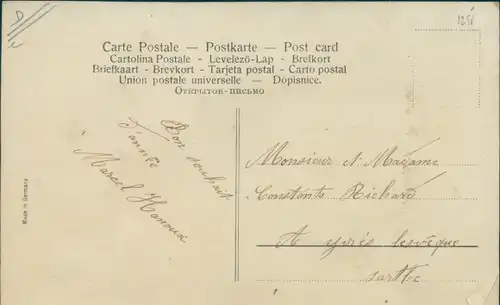 D
1251
Carte Postale — Postkarte — Post card
Cartolina Postale - Levelező-Lap - Brefkort
Briefkaart - Brevkort - Tarjeta postal - Carto postal
Union postale universelle — Dopisnice.
Открытое-письмо
Bon souhait
d'année
Marcel Hanoux
Monsieur et Madame
Constants Richard
A yvrés leveque
sarthe
Made in Germany